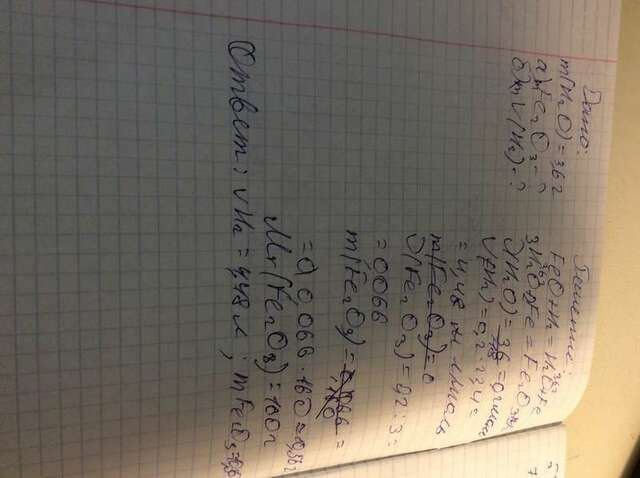 Дано:
m(H₂O) = 3,6 г
а) m Fe₂O₃ - ?
б) V(H₂) - ?
Решение:
3,6 г
FeO + H₂ = H₂O + Fe
3,6 г
3H₂O + 2Fe = Fe₂O₃ + 3H₂
ν(H₂O) = 3,6/18 = 0,2 моль
V(H₂) = 0,2 · 22,4 =
= 4,48 л/моль
m(Fe₂O₃) = 0
ν(Fe₂O₃) = 0,2 : 3 =
= 0,066
m(Fe₂O₃) = 0,066/160 =
= 0,066 · 160 = 10,56 г
Mr(Fe₂O₃) = 160 г
Ответ: VH₂ = 4,48 л ; mFe₂O₃ = 10,5